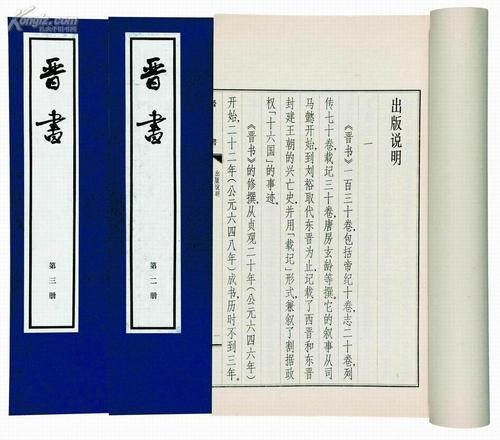 Kongfz.com
孔夫子旧书网
晋書
第三册
晋書
第二册
出版说明
一
《晋书》一百三十卷，包括帝纪十卷，志二十卷，列
传七十卷，载记三十卷，唐房玄龄等撰。它的叙事从司
马懿开始，到刘裕取代东晋为止，记载了西晋和东晋
封建王朝的兴亡史，并用「载记」形式，兼叙了割据政
权「十六国」的事迹。
《晋书》的修撰，从贞观二十年（公元六四六年）
开始，二十二年（公元六四八年）成书，历时不到三年。
出版说明